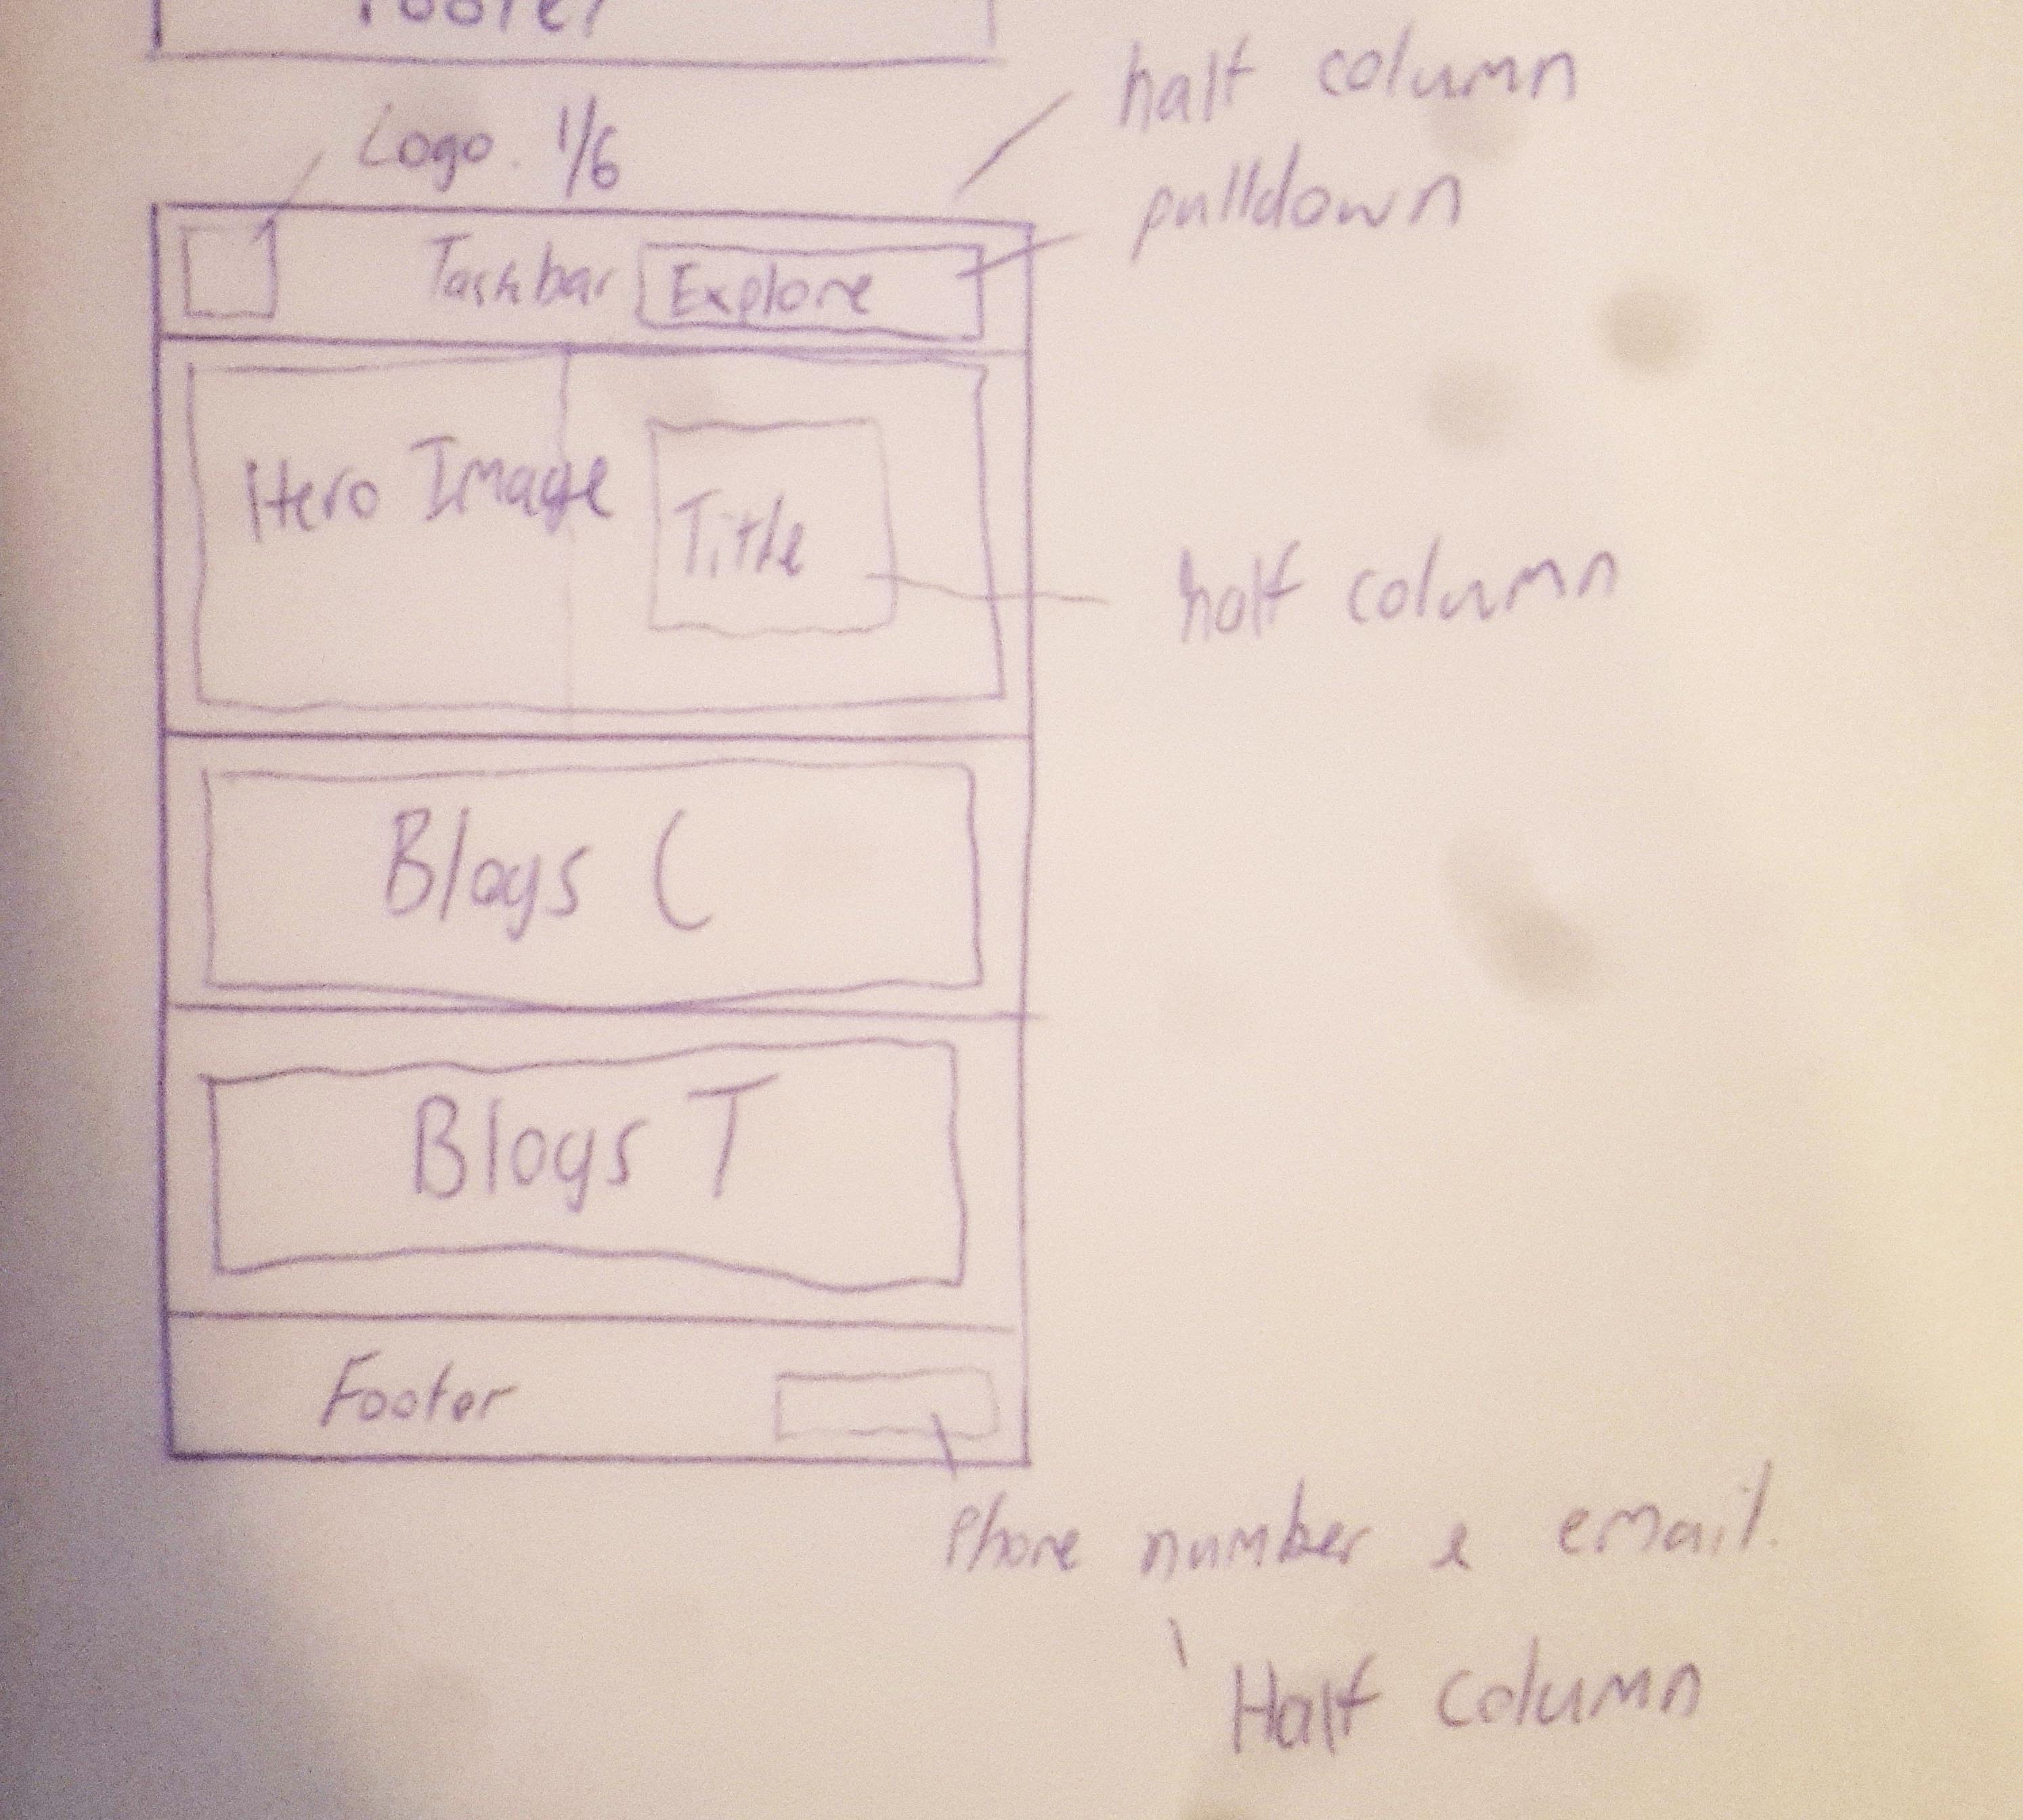 Footer
half column
Logo. 1/6
pulldown
Taskbar Explore
Hero Image
Title
half column
Blogs C
Blogs T
Footer
Phone number & email.
Half column